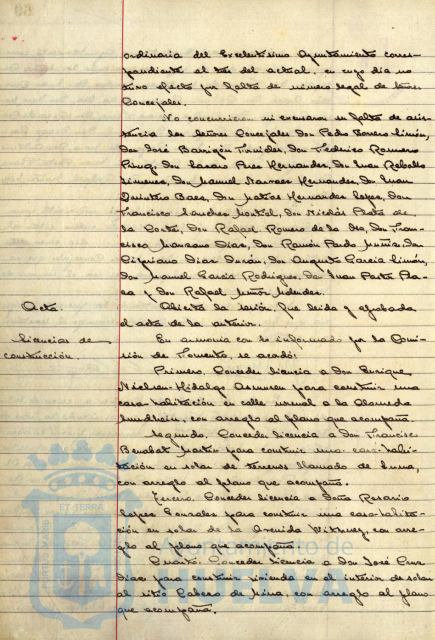 ordinaria del Excelentísimo Ayuntamiento corres-
pondiente al tres del actual, en cuyo día no
tuvo efecto por falta de número legal de Señores
Concejales.
No concurrieron ni excusaron su falta de asis-
tencia los Señores Concejales Don Pedro Borrero Limón,
Don José Barrigón Don Federico Romero
Don Lázaro Pérez Hernández, Don Juan Rebollo
Jimenez, Don Manuel Narváez Hernandez, Don Juan
Quintero Baez, Don Matías Hernandez López, Don
Francisco Sánchez Montiel, Don Nicolás de
la Corte, Don Rafael Romero de la Don Fran-
cisco Manzano Díaz, Don Ramón Pardo Muñiz, Don
Cipriano Díaz Durán, Don Augusto García Limón,
Don Manuel García Rodríguez, Don Juan
y Don Rafael Muñoz Méndez.
Acta.
Abierta la sesión, fué leida y aprobada
el acta de la anterior.
Licencias de
construcción.
En armonía con lo informado por la Comi-
sión de Fomento, se acordó:
Primero. Conceder licencia a Don Enrique
Hidalgo para construir una
casa-habitación en calle normal a la Alameda
Sundheim, con arreglo al plano que acompaña.
Segundo. Conceder licencia a Don Francisco
Benabat para construir una casa-habi-
tación en solar de terrenos llamado de
con arreglo al plano que acompaña.
Tercero. Conceder licencia a Doña Rosario
López González para construir una casa-habita-
ción en solar de la Avenida con arre-
glo al plano que acompaña.
Cuarto. Conceder licencia a don José Cruz
Díaz para construir vivienda en el interior de solar
al sitio Cabezo de Mina, con arreglo al plano
que acompaña.
Ayuntamiento de
HUELVA